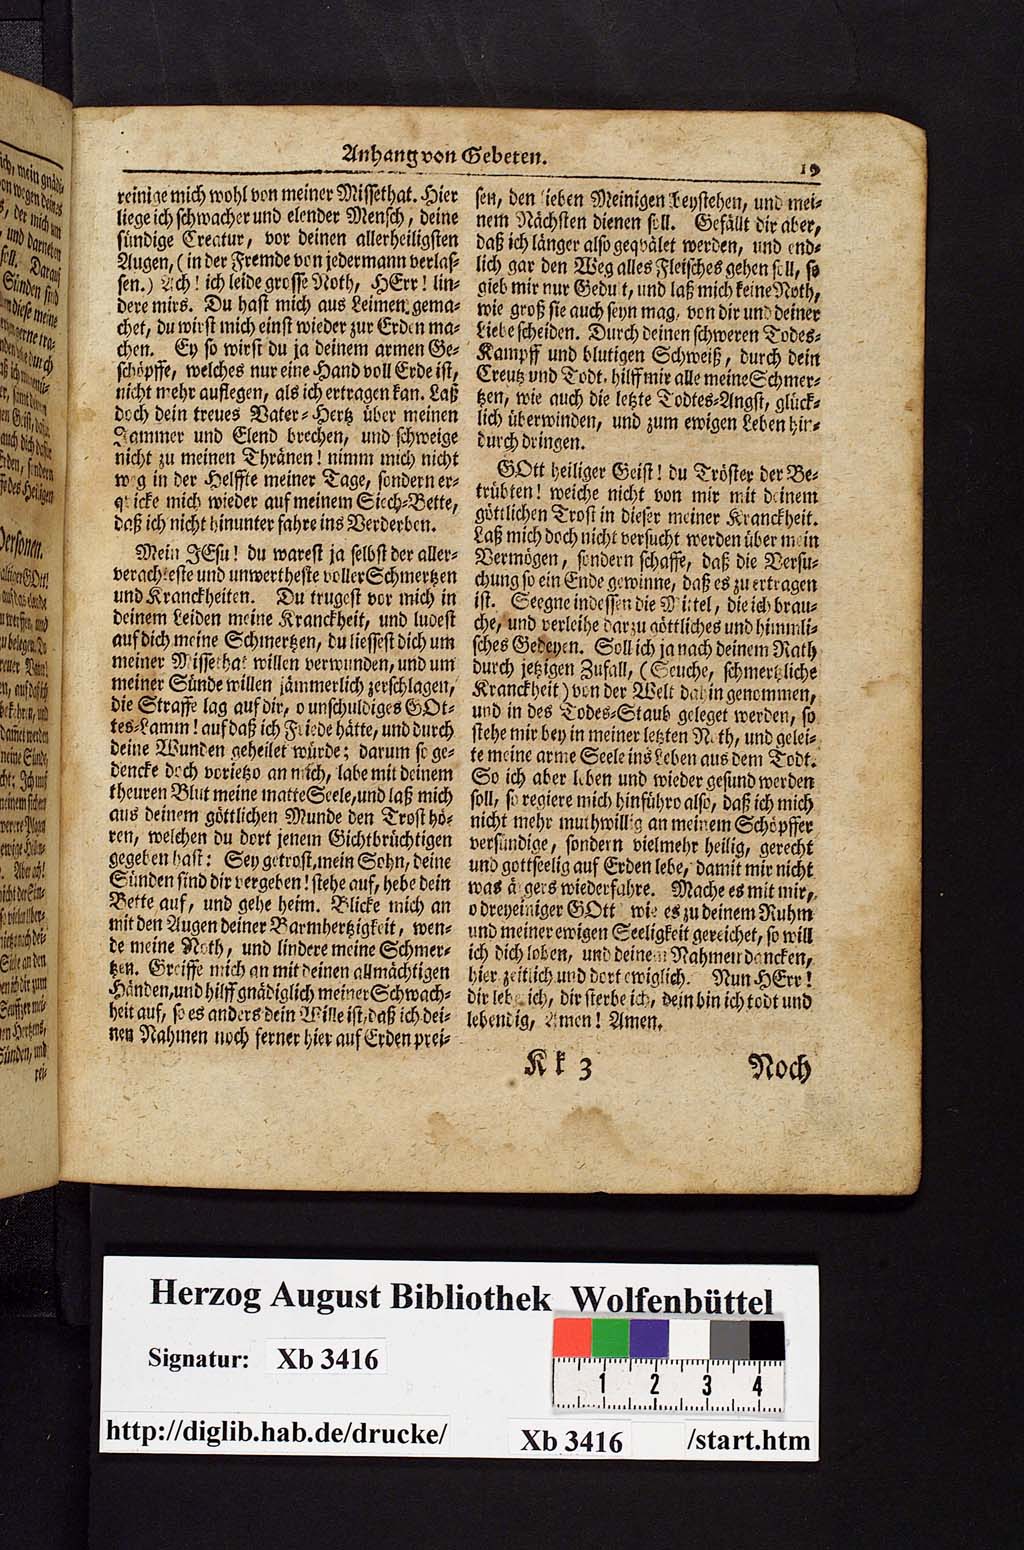 Anhang von Gebeten.
19
reinige mich wohl von meiner Missethat. Hier
liege ich schwacher und elender Mensch, deine
sündige Creatur, vor deinen allerheiligsten
Augen, (in der Fremde von jedermann verlas-
sen.) Ach! ich leide grosse Noth, HErr! lin-
dere mirs. Du hast mich aus Leimen gema-
chet, du wirst mich einst wieder zur Erden ma-
chen. Ey so wirst du ja deinem armen Ge-
schöpffe, welches nur eine Hand voll Erde ist,
nicht mehr auflegen, als ich ertragen kan. Laß
doch dein treues Vater-Hertz über meinen
Jammer und Elend brechen, und schweige
nicht zu meinen Thränen! nimm mich nicht
weg in der Helffte meiner Tage, sondern er-
quicke mich wieder auf meinem Siech-Bette,
daß ich nicht hinunter fahre ins Verderben.
Mein JEsu! du warest ja selbst der aller-
verachteste und unwertheste voller Schmertzen
und Kranckheiten. Du trugest vor mich in
deinem Leiden meine Kranckheit, und ludest
auf dich meine Schmertzen, du liessest dich um
meiner Missethat willen verwunden, und um
meiner Sünde willen jämmerlich zerschlagen,
die Straffe lag auf dir, o unschuldiges GOt-
tes-Lamm! auf daß ich Friede hätte, und durch
deine Wunden geheilet würde; darum so ge-
dencke doch vorietzo an mich, labe mit deinem
theuren Blut meine matte Seele, und laß mich
aus deinem göttlichen Munde den Trost hö-
ren, welchen du dort jenem Gichtbrüchtigen
gegeben hast: Sey getrost, mein Sohn, deine
Sünden sind dir vergeben! stehe auf, hebe dein
Bette auf, und gehe heim. Blicke mich an
mit den Augen deiner Barmhertzigkeit, wen-
de meine Noth, und lindere meine Schmer-
tzen. Greiffe mich an mit deinen allmächtigen
Händen, und hilff gnädiglich meiner Schwach-
heit auf, so es anders dein Wille ist, daß ich dei-
nen Nahmen noch ferner hier auf Erden prei-
sen, den lieben Meinigen beystehen, und mei-
nem Nächsten dienen soll. Gefällt dir aber,
daß ich länger also geqvälet werden, und end-
lich gar den Weg alles Fleisches gehen soll, so
gieb mir nur Gedult, und laß mich keine Noth,
wie groß sie auch seyn mag, von dir und deiner
Liebe scheiden. Durch deinen schweren Todes-
Kampff und blutigen Schweiß, durch dein
Creutz und Todt, hilff mir alle meine Schmer-
tzen, wie auch die letzte Todtes-Angst, glück-
lich überwinden, und zum ewigen Leben hin-
durch dringen.
GOtt heiliger Geist! du Tröster der Be-
trübten! weiche nicht von mir mit deinem
göttlichen Trost in dieser meiner Kranckheit.
Laß mich doch nicht versucht werden über mein
Vermögen, sondern schaffe, daß die Versu-
chung so ein Ende gewinne, daß es zu ertragen
ist. Seegne indessen die Mittel, die ich brau-
che, und verleihe darzu göttliches und himmli-
sches Gedeyen. Soll ich ja nach deinem Rath
durch jetzigen Zufall, (Seuche, schmertzliche
Kranckheit) von der Welt dahin genommen,
und in des Todes-Staub geleget werden, so
stehe mir bey in meiner letzten Noth, und gelei-
te meine arme Seele ins Leben aus dem Todt.
So ich aber leben und wieder gesund werden
soll, so regiere mich hinführo also, daß ich mich
nicht mehr muthwillig an meinem Schöpffer
versündige, sondern vielmehr heilig, gerecht
und gottseelig auf Erden lebe, damit mir nicht
was ärgers wiederfahre. Mache es mit mir,
o dreyeiniger GOtt wie es zu deinem Ruhm
und meiner ewigen Seeligkeit gereichet, so will
ich dich loben, und deinem Nahmen dancken,
hier zeitlich und dort ewiglich. Nun HErr!
dir lebe ich, dir sterbe ich, dein bin ich todt und
lebendig, Amen! Amen.
Kk 3
Noch
Herzog August Bibliothek Wolfenbüttel
Signatur: Xb 3416
1 2 3 4
http://diglib.hab.de/drucke/ Xb 3416 /start.htm